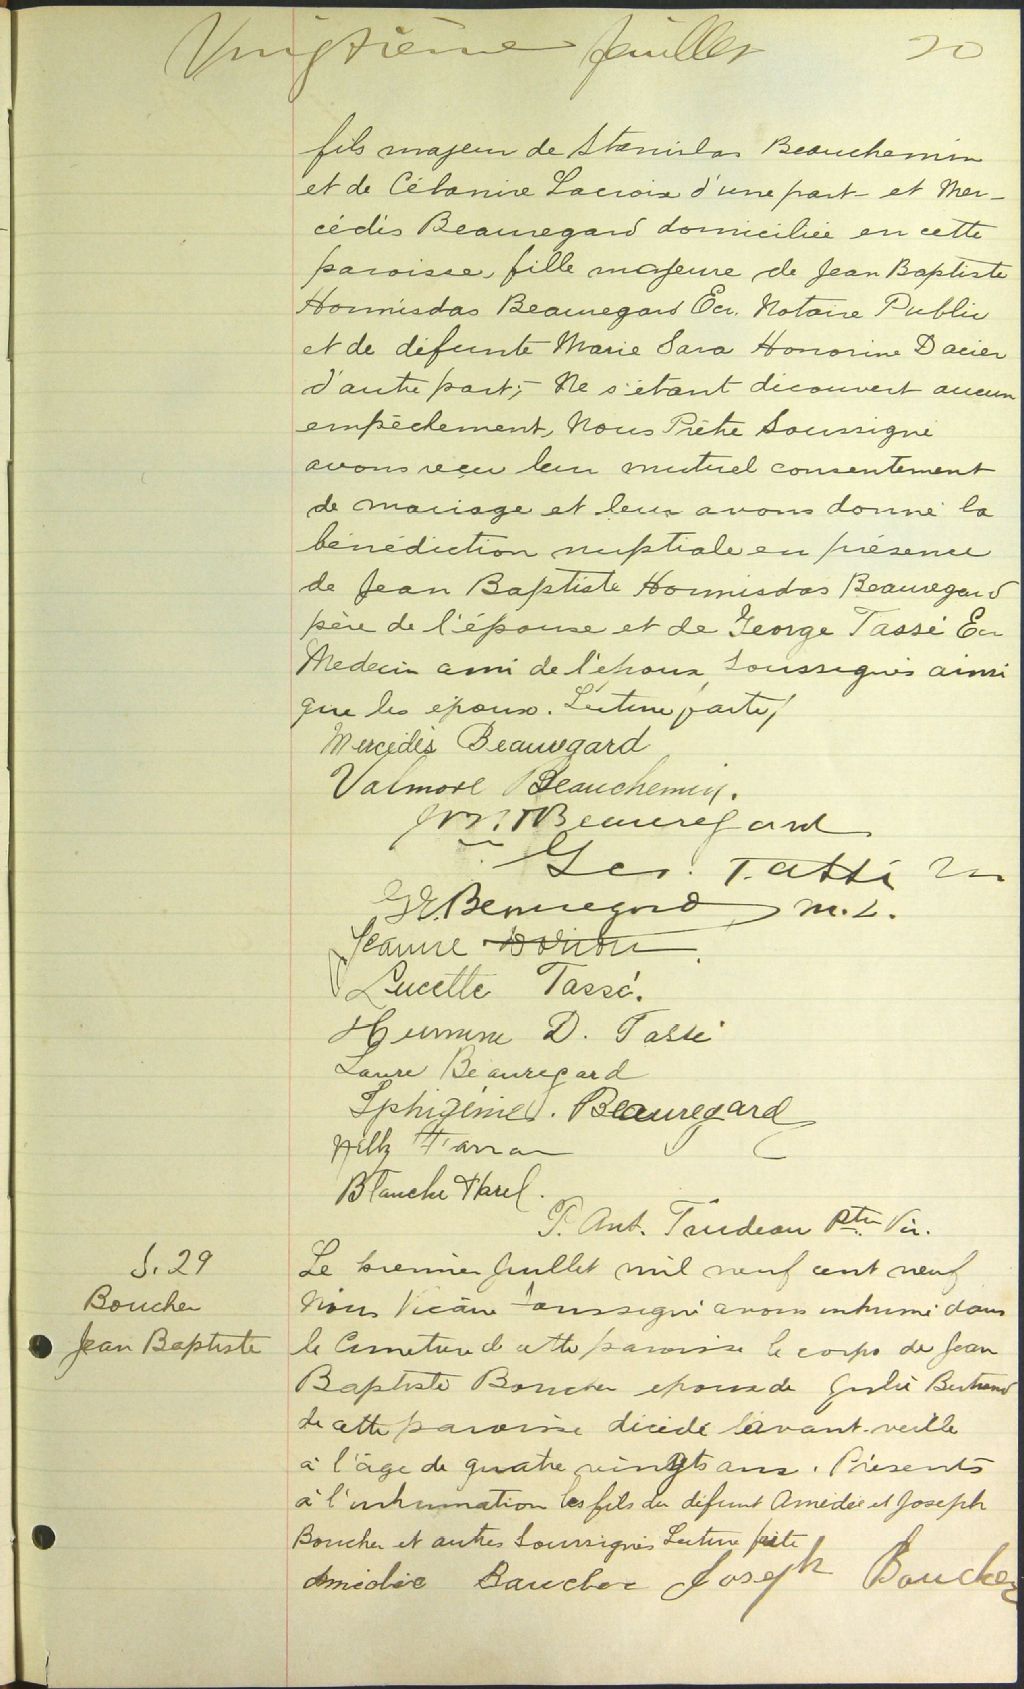 Vingtième feuillet 20
fils majeur de Stanislas Beauchemin
et de Célanire Lacroix d'une part et Mer-
cédès Beauregard domiciliée en cette
paroisse, fille majeure de Jean Baptiste
Hormisdas Beauregard Ecr. Notaire Public
et de défunte Marie Sara Honorine Dacier
d'autre part; Ne s'étant découvert aucun
empêchement, Nous Prêtre Soussigné
avons reçu leur mutuel consentement
de mariage et leur avons donné la
bénédiction nuptiale en présence
de Jean Baptiste Hormisdas Beauregard
père de l'épouse et de George Tassé Ecr
Medecin ami de l'époux soussignés ainsi
que les époux. Lecture faite/
Mercédès Beauregard
Valmore Beauchemin.
Beauregard
Geo. Tassé
Beauregard M.L.
Jeanne
Lucette Tassé.
D. Tassé
Laure Beauregard
Iphigénie. Beauregard
Blanche Harel.
P. Ant. Trudeau Ptre Vic.
S. 29
Boucher
Jean Baptiste
Le premier Juillet mil neuf cent neuf
Nous Vicaire soussigné avons inhumé dans
le Cimetiere de cette paroisse le corps de Jean
Baptiste Boucher epoux de Julie Bertrand
de cette paroisse décédé l'avant-veille
à l'âge de quatre vingts ans. Présents
à l'inhumation les fils du défunt Amédée et Joseph
Boucher et autres Soussignés Lecture faite
Amédée Boucher Joseph Boucher